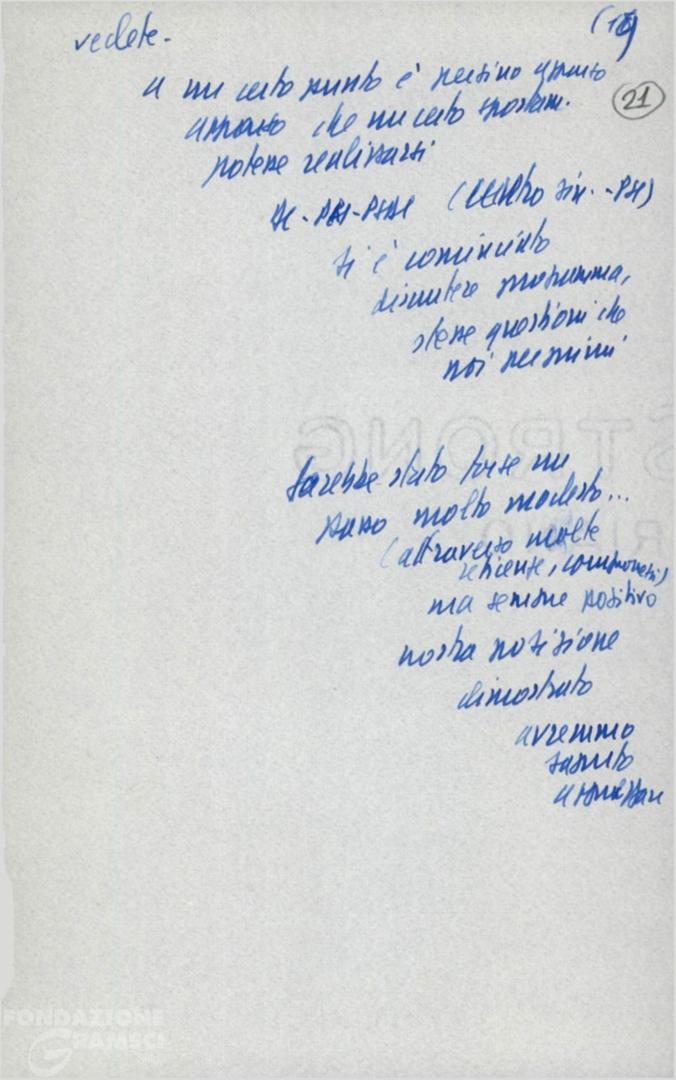 vedete -
(19)
21
a un certo punto è persino
apparso che un certo spostam.
potesse realizzarsi
DC-PSI-PSDI (centro sin. - PSI)
si è cominciato
discutere programma,
stesse questioni che
noi
STRONG
Sarebbe stato forse un
passo molto modesto...
(attraverso molte
reticenze, compromessi)
ma sempre positivo
nostra posizione
dimostrato
avremmo
saputo
apprezzare
FONDAZIONE
GRAMSCI